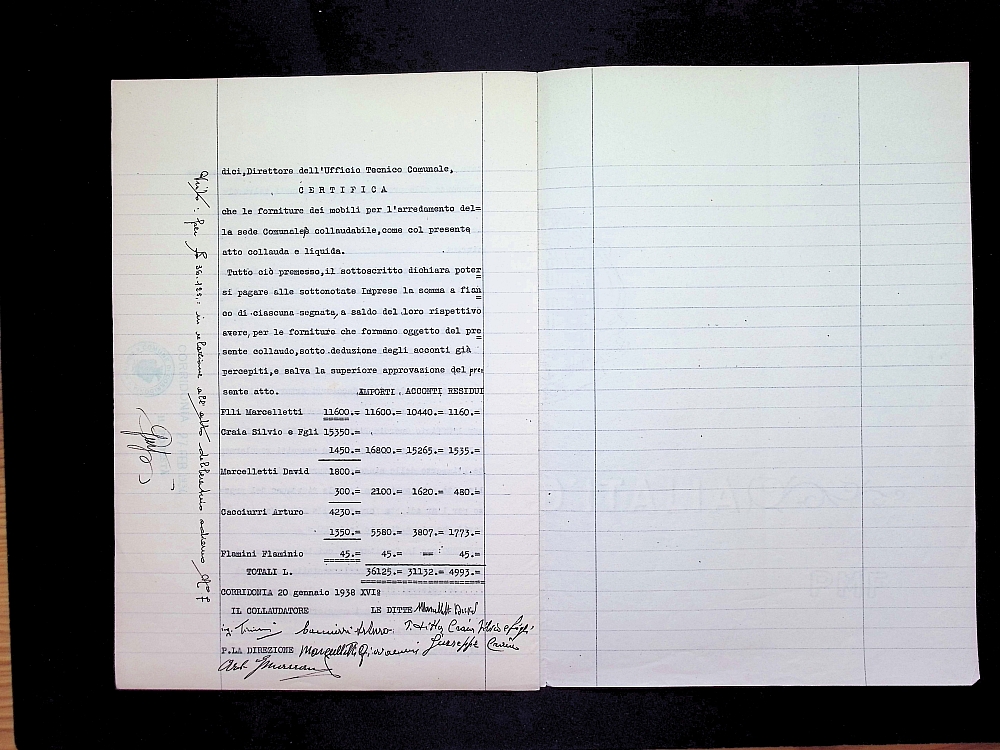 dici,Direttore dell'Ufficio Tecnico Comunale,
C E R T I F I C A
che le forniture dei mobili per l'arredamento del=
la sede Comunaleè collaudabile,come col presente
atto collauda e liquida.
Tutto ciò premesso,il sottoscritto dichiara poter
si pagare alle sottonotate Imprese la somma a fian
co di ciascuna segnata,a saldo del loro rispettivo
avere,per le forniture che formano oggetto del pre
sente collaudo,sotto deduzione degli acconti già
percepiti,e salva la superiore approvazione del pre
sente atto. IMPORTI. ACCONTI RESIDUI
Flli Marcelletti 11600.= 11600.= 10440.= 1160.=
Craia Silvio e Fgli 15350.=
1450.= 16800.= 15265.= 1535.=
Marcelletti David 1800.=
300.= 2100.= 1620.= 480.=
Cacciurri Arturo 4230.=
1350.= 5580.= 3807.= 1773.=
Flamini Flaminio 45.= 45.= == 45.=
TOTALI L. 36125.= 31132.= 4993.=
CORRIDONIA 20 gennaio 1938 XVI°
IL COLLAUDATORE LE DITTE Marcelletti David
ing. Cacciurri Arturo. Ditta Craia Silvio e figli
P.LA DIREZIONE Marcelletti Giovanni Giuseppe Craia
Arch.
Visto: per in relazione all'atto deliberativo odierno N° 7